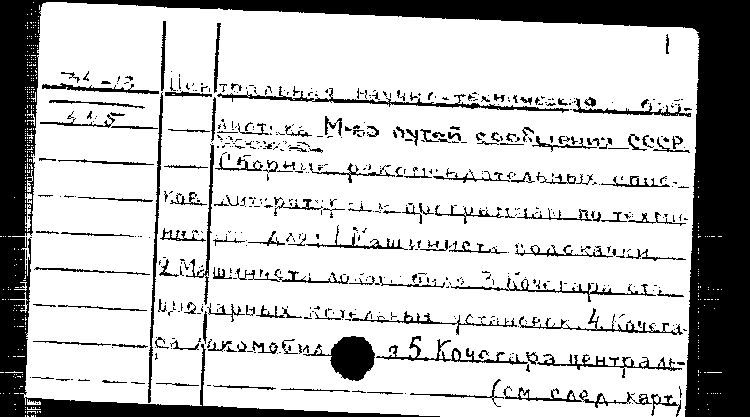 1
34-13 Центральная научно-техническая биб-
445
лиотека М-ва путей сообщения СССР
Сборник рекомендательных спис-
ков литературы к программам по техми-
нимуму для: 1 Машиниста водокачки.
2. Машиниста локомобиля 3. Кочегара ста
ционарных котельных установок. 4. Кочега-
ра локомобиля 5. Кочегара централь-
(см. след. карт.)